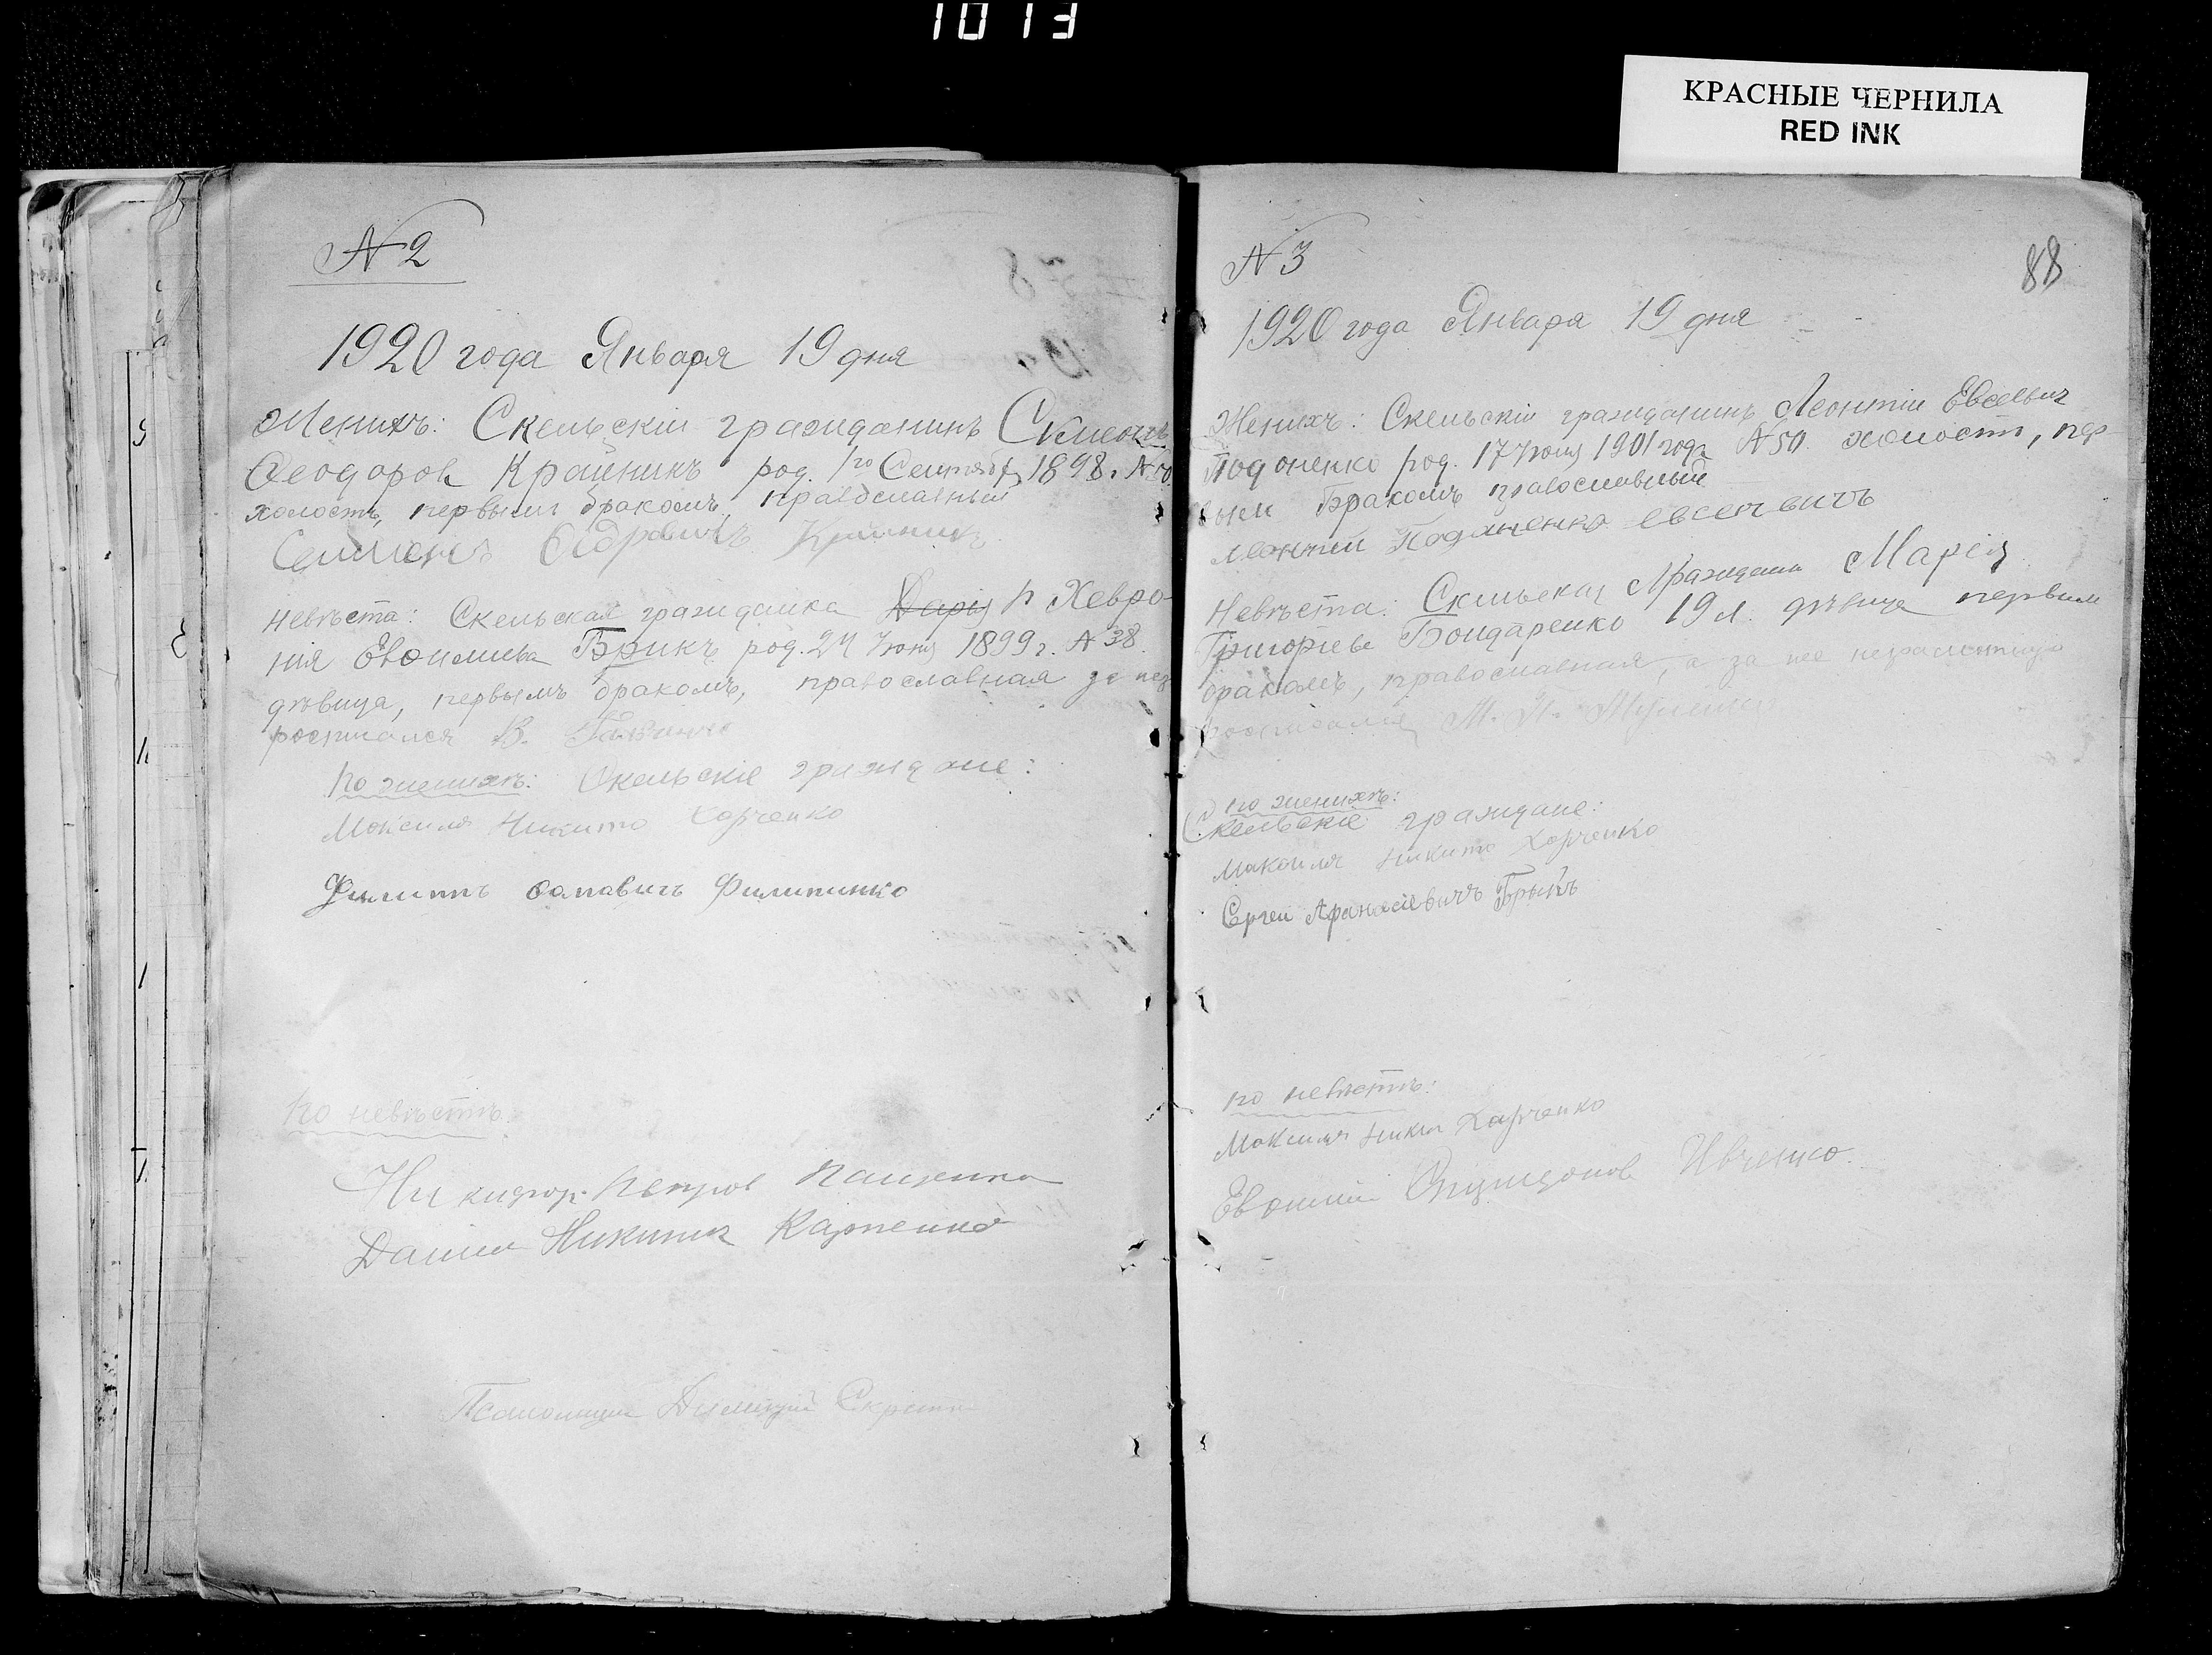 1013
КРАСНЫЕ ЧЕРНИЛА
RED INK
N 2
1920 года Января 19 дня
Женихъ: Скельскій гражданинъ Симеонъ
Ѳеодоровъ Крайникъ род. 1го Сентября 1898 г. N 70
холостъ, первымъ бракомъ, православный
Семенъ Крайникъ
Невѣста: Скельская гражданка Дарія Хевро-
нія Евѳиміева Брикъ род. 24 Іюня 1899 г. N 38
дѣвица, первымъ бракомъ, православная за нег
росписался В.
по женихѣ: Скельскіе граждане:
Максимъ Никит Харченко
Филиппъ Филипинко
по невѣстѣ:
Никифор Петров Пащенко
Данил Никитин Карпенко
Псаломщик Димитрий
N 3
88
1920 года Января 19 дня
Женихъ: Скельскій гражданинъ Леонтій Евсеевич
Подоненко род. 17 Іюня 1901 года N 50. холостъ, пер-
вым Бракомъ православный
Леонтий Подоненко евсеевичъ
Невѣста: Скельская Гражданка Марія
Григорьева Бондаренко 19 л. дѣвица первым
бракомъ, православная, а за нее неграмотную
росписался М. П.
по женихѣ:
Скельскіе граждане:
Максимъ Никит Харченко
Сергеи Афанасіевичъ Брыкъ
по невѣстѣ:
Максимъ Никит Харченко
Евѳимій Спиридонов Ивченко